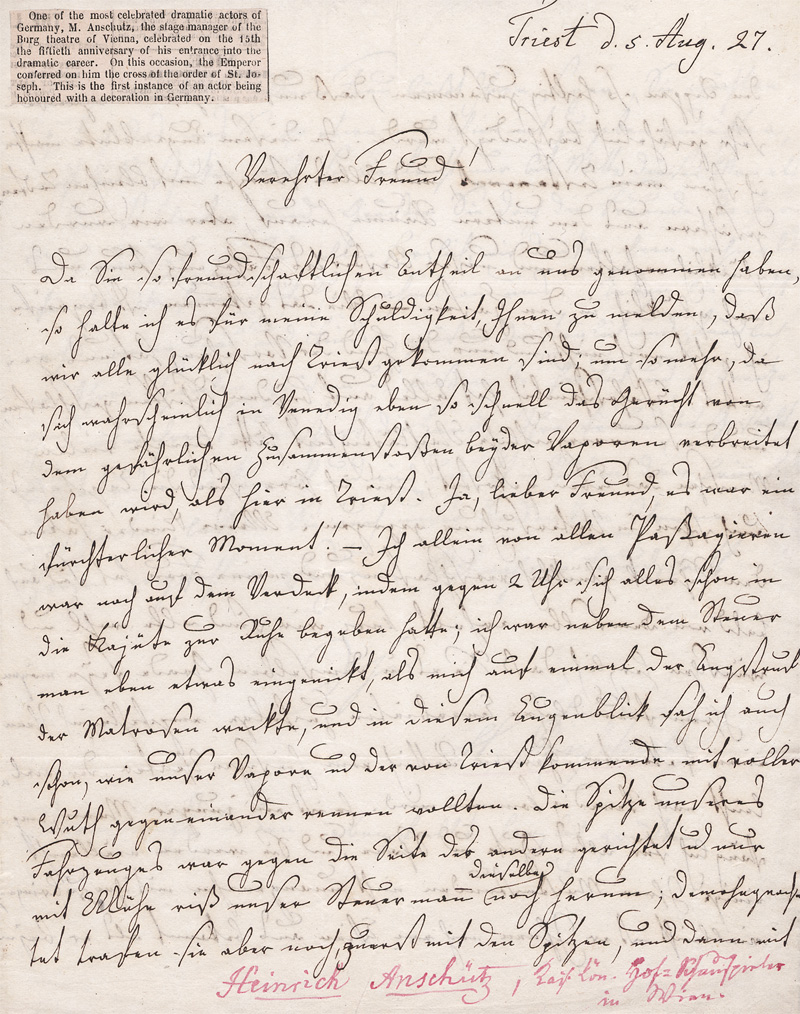 One of the most celebrated dramatic actors of
Germany, M. Anschutz, the stage manager of the
Burg theatre of Vienna, celebrated on the 15th
the fiftieth anniversary of his entrance into the
dramatic career. On this occasion, the Emperor
conferred on him the cross of the order of St. Jo-
seph. This is the first instance of an actor being
honoured with a decoration in Germany.
Triest d. 5. Aug. 27.
Verehrter Freund!
Da Sie so freundschaftlichen Antheil an uns genommen haben,
so halte ich es für meine Schuldigkeit, Ihnen zu melden, daß
wir alle glücklich nach Triest gekommen sind; um so mehr, da
sich wahrscheinlich in Venedig eben so schnell das Gerücht von
dem gefährlichen Zusammenstoßen beyder Vaporen verbreitet
haben wird, als hier in Triest. Ja, lieber Freund, es war ein
fürchterlicher Moment! – Ich allein von allen Paßagieren
war noch auf dem Verdeck, indem gegen 2 Uhr sich alles schon in
die Kajüte zur Ruhe begeben hatte; ich war neben dem Steuer
man eben etwas eingenickt, als mich auf einmal der Angstruf
der Matrosen weckte, und in diesem Augenblick sah ich auch
schon, wie unser Vapore und der von Triest kommende mit voller
Wuth gegeneinander rennen wollten. Die Spitze unseres
Fahrzeuges war gegen die Seite des andern gerichtet ud nur
mit Mühe riß unser Steuermann dieselbe noch herum; demohngeach-
tet trafen sie aber noch zuerst mit den Spitzen, und dann mit
Heinrich Anschütz, Kais. Kön. Hof-Schauspieler
in Wien.